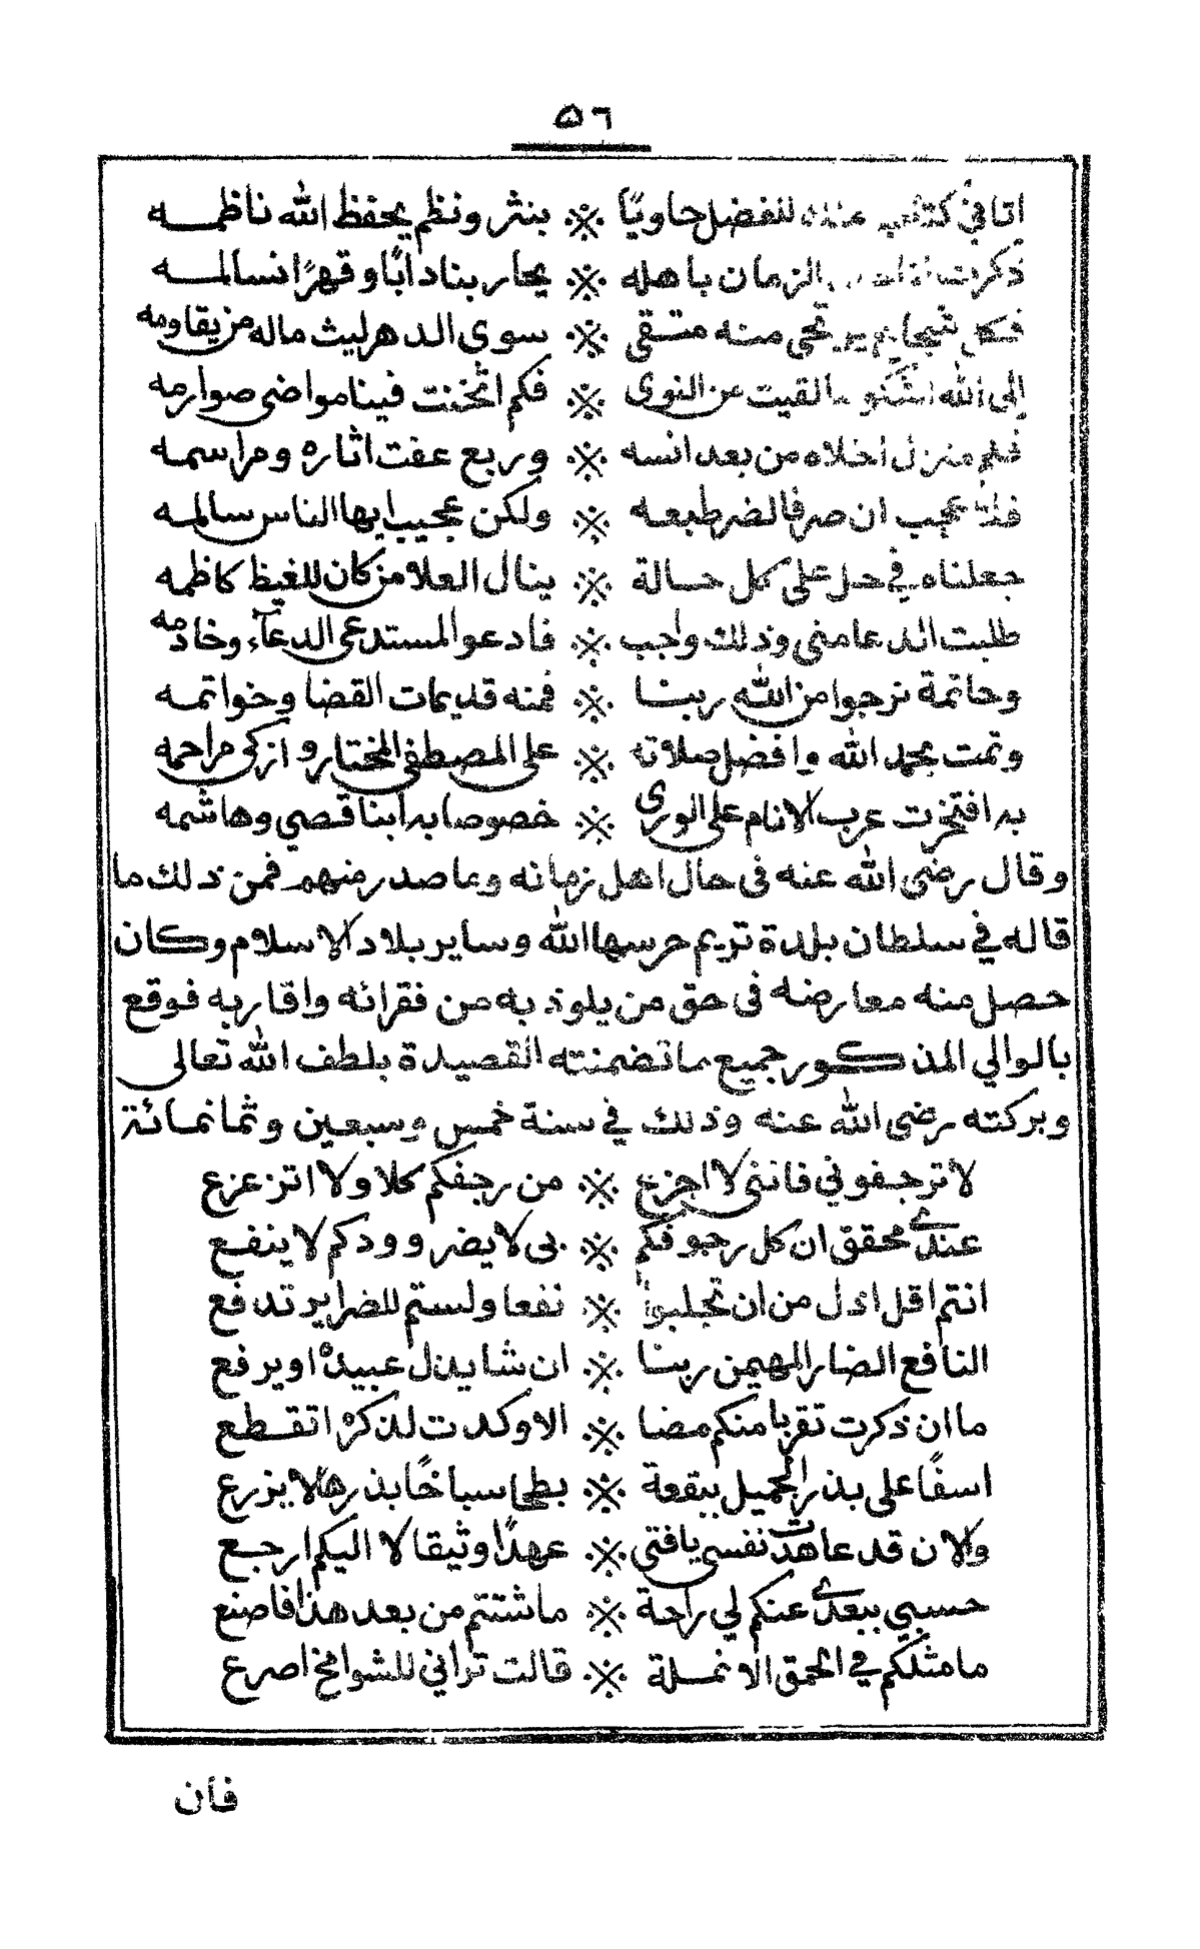 ٥٦
اتاني للفضل حاويًا ※ بنثر ونظم يحفظ الله ناظمـه
ذكرت الزمان باهله ※ يحارب نادابًا وقهرًا نسالمـه
يرتجى منه متقي ※ سوى الدهر ليث ماله من يقاومه
إلى الله القيت من النوى ※ فكم اثخنت فينا مواضى صوارمه
فكم منزل اخلاه من بعد انسه ※ وربع عفت اثاره ومراسمه
ان صرفا لضر طبعه ※ ولكن عجيب ايها الناس سالمـه
جعلناه في حل على كل حـالة ※ ينال العلا من كان للغيظ كاظمه
طلبت الدعا مني وذلك واجب ※ فادعو المستدعى الدعآء وخادمه
وخاتمة نرجوا من الله ربنـا ※ فمنه قديمات القضا وخواتمـه
وتمت بحمد الله وافضل صلاته ※ على المصطفى المختار وازكى مراحمه
به افتخرت عرب الانام على الورى ※ خصوصا به ابنا قصي وهاشمه
وقال رضى الله عنه فى حال اهل زمانه وعما صدر منهم فمن ذلك ما
قاله في سلطان بلدة تريم حرسها الله وساير بلاد الاسلام وكان
حصل منه معارضه فى حق من يلوذ به من فقرائه واقاربه فوقع
بالوالي المذكور جميع ما تضمنته القصيدة بلطف الله تعالى
وبركته رضى الله عنه وذلك في سنة خمس وسبعين وثمانمائة
لا ترجفوني فاننى لا اجزع ※ من رجفكم كلا ولا اتزعزع
عندى محقق ان كل رجوفكم ※ بى لا يضر وودكم لا ينفـع
انتم اقل اذل من ان تجلبوا ※ نفعا ولستم للضراير تدفع
النافع الضار المهيمن ربنـا ※ ان شا يذل عبيده او يرفع
ما ان ذكرت تقربا منكم مضا ※ الا وكدت لذكره اتقـطع
اسفًا على بذر الجميل ببقعة ※ بطحا سباخًا بذرها لا يزرع
والان قد عاهدت نفسى يافتى ※ عهدًا وثيقا لا اليكم ارجـع
حسبي ببعدى عنكم لي راحة ※ ما شئتم من بعد هذا فاصنع
ما مثلكم في الحمق الا نمـلة ※ قالت تراني للشوامخ اصرع
فان